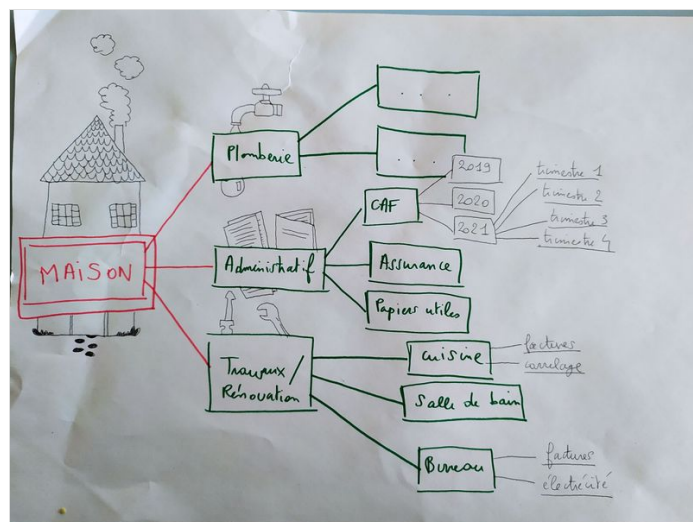 MAISON
Plomberie
. . .
. . .
Administratif
CAF
2019
2020
2021
trimestre 1
trimestre 2
trimestre 3
trimestre 4
Assurance
Papiers utiles
Travaux /
Rénovation
Cuisine
factures
carrelage
Salle de bain
Bureau
factures
électrécité